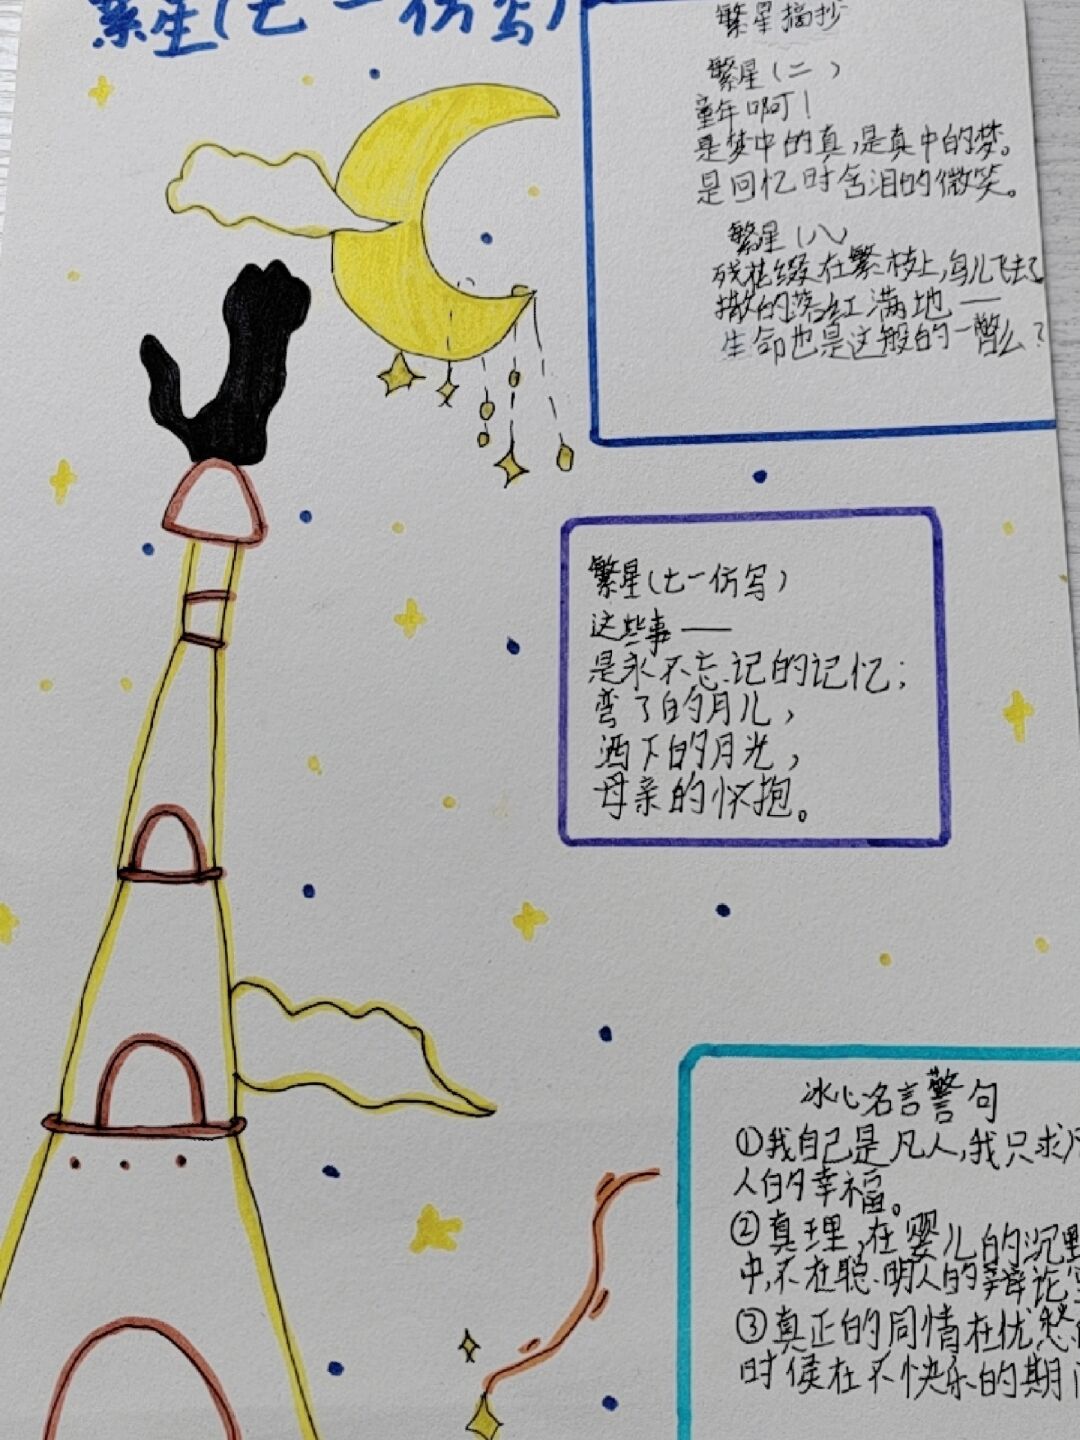 繁星(七一仿写)
繁星摘抄
繁星(二)
童年啊!
是梦中的真,是真中的梦。
是回忆时含泪的微笑。
繁星(八)
残花缀在繁枝上,鸟儿飞去了
撒的落红满地——
生命也是这般的一瞥么?
繁星(七一仿写)
这些事——
是永不忘记的记忆;
弯了的月儿,
洒下的月光,
母亲的怀抱。
冰心名言警句
①我自己是凡人,我只求凡
人的幸福。
②真理,在婴儿的沉默
中,不在聪明人的辩论
③真正的同情在忧愁的
时候在不快乐的期